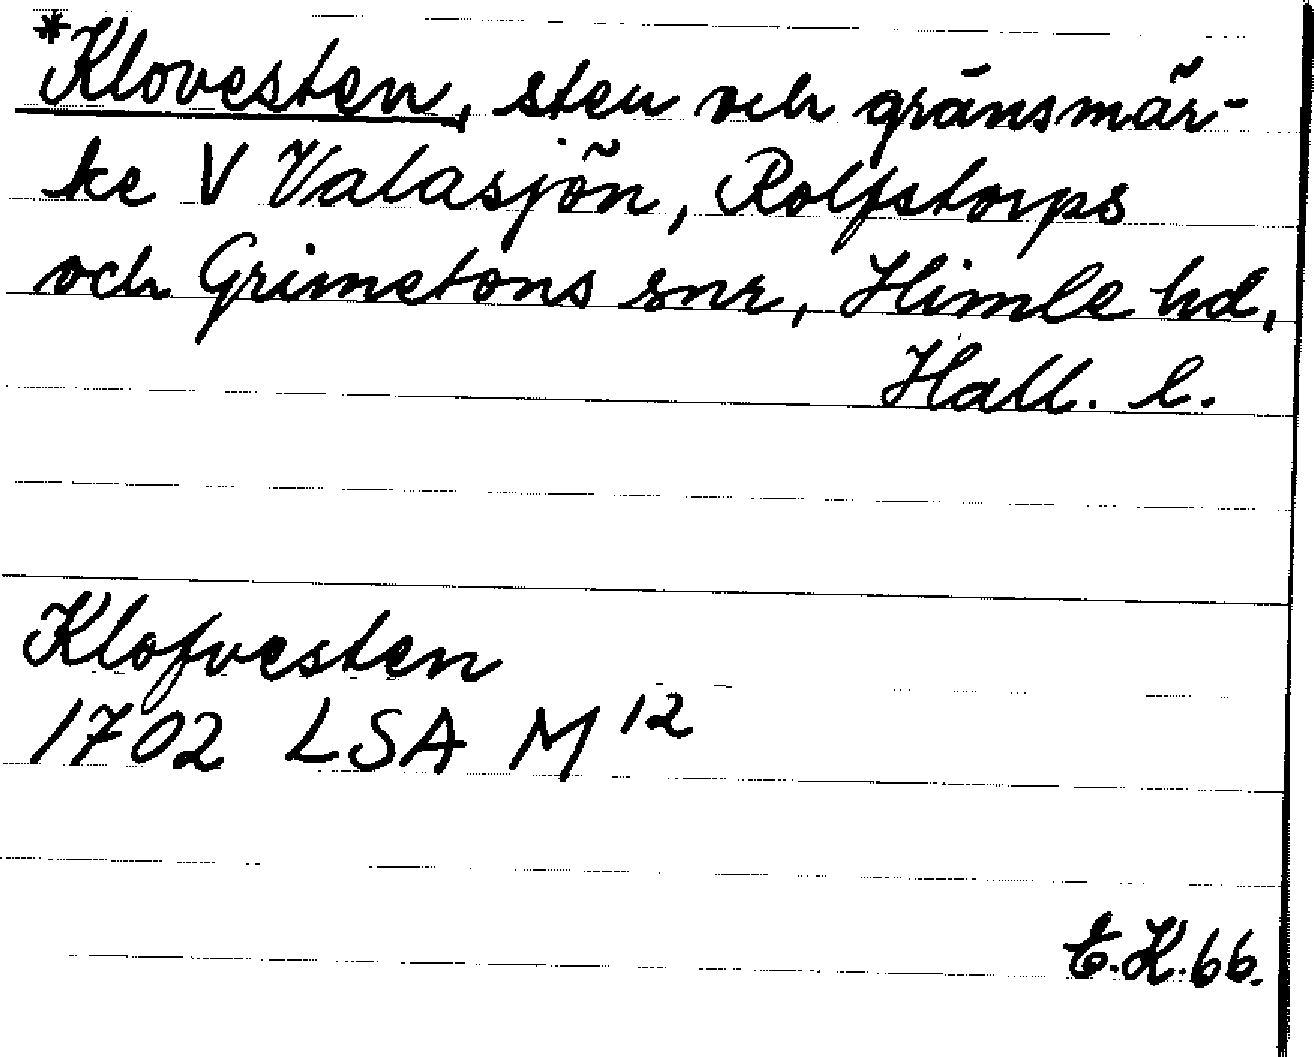 *Klovesten, sten och gränsmär-
ke V Valasjön, Rolfstorps
och Grimetons snr, Himle hd,
Hall. l.
Klofvesten
1702 LSA M 12
E.K.66.